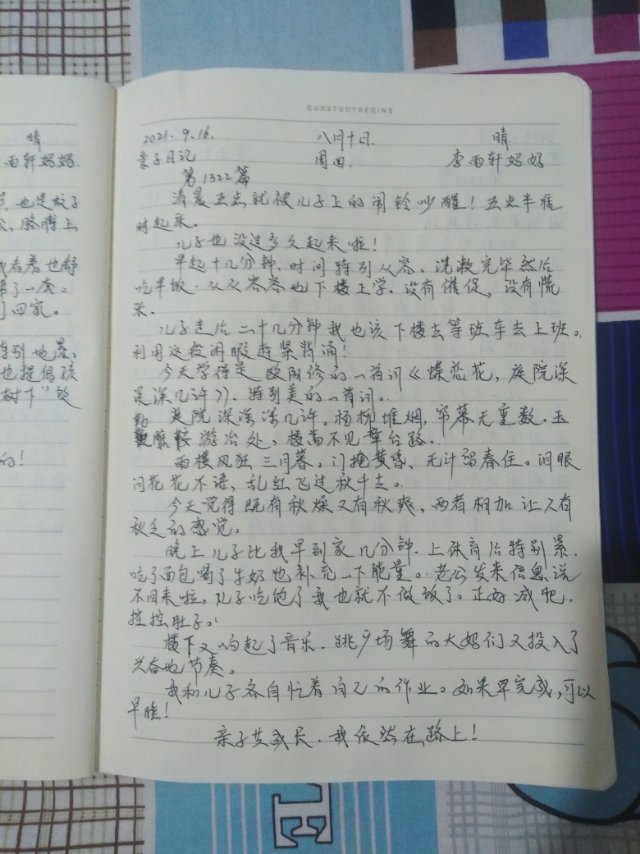 晴
雨轩妈妈
也是蚊子
了一套。
们回家。
树下”的
的!
OURSTUDYBEGINS
2021.9.16. 八月十日. 晴
亲子日记 周四. 李雨轩妈妈
第1322篇
清晨五点就被儿子上的闹铃吵醒!五点半准
时起来。
儿子也没过多久起来啦!
早起十几分钟.时间特别从容。洗漱完毕然后
吃早饭.从从容容地下楼上学.没有催促,没有慌
乐.
儿子走后二十几分钟我也该下楼去等班车去上班。
利用这段闲暇赶紧背诵!
今天学得是欧阳修的一首词《蝶恋花,庭院深
深深几许》.特别美的一首词。
庭院深深深几许.杨柳堆烟,帘幕无重数.玉
勒雕鞍游冶处,楼高不见章台路.
雨横风狂三月暮。门掩黄昏,无计留春住。泪眼
问花花不语,乱红飞过秋千去。
今天觉得既有秋燥又有秋爽,两者相加让又有
秋乏的感觉。
晚上儿子比我早到家几分钟.上体育后特别累.
吃了面包喝了牛奶也补充一下能量。老公发来信息说
不回来啦.儿子吃饱了我也就不做饭了。正好减肥.
控控肚子。!
楼下又响起了音乐.跳广场舞的大妈们又投入了
兴奋地节奏。
我和儿子各自忙着自己的作业。如果早完成,可以
早睡!
亲子共成长.我依然在路上!
VE